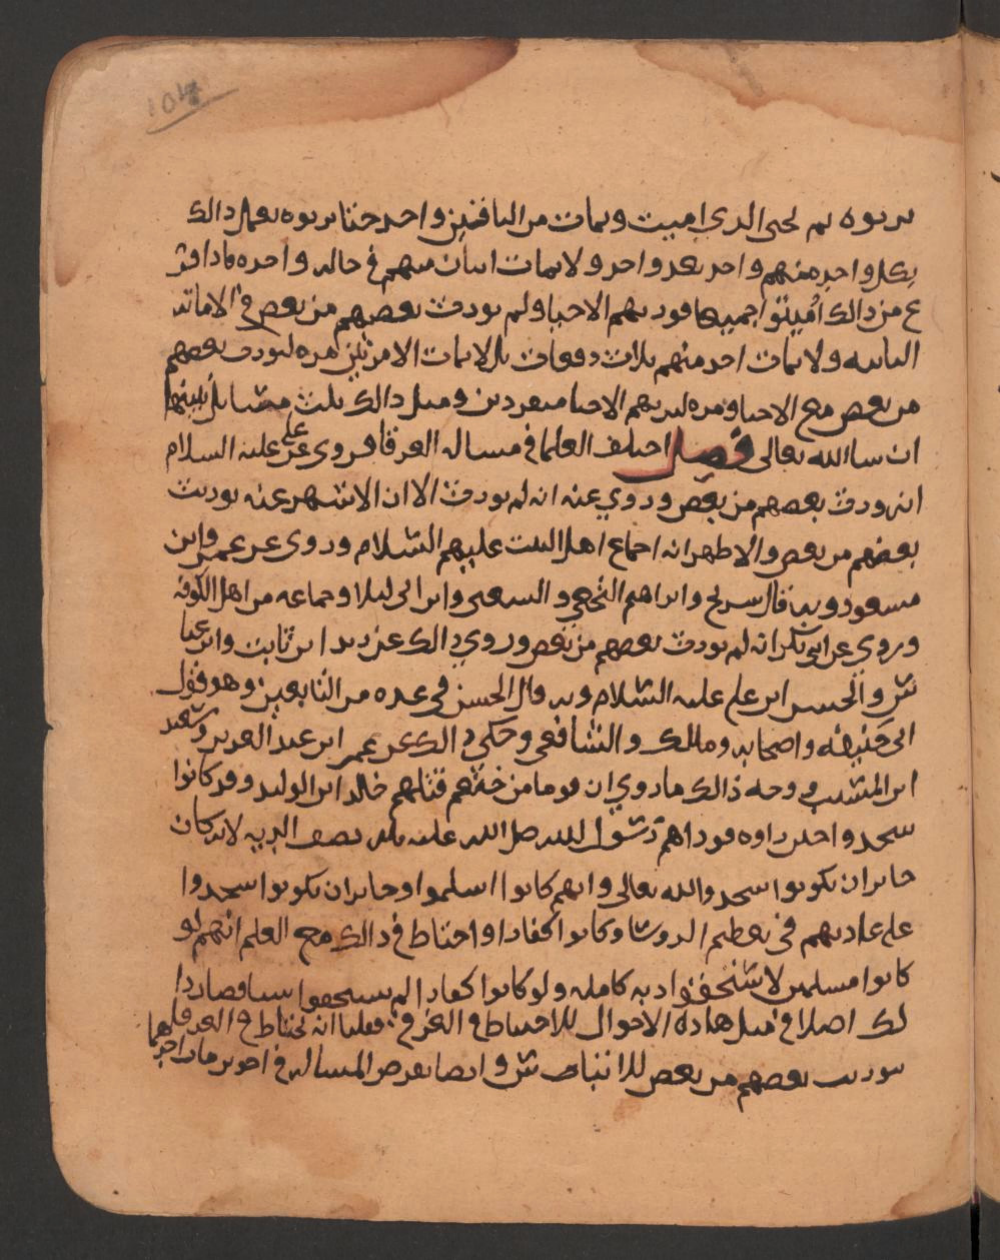 104
يرثوه ثم تحيى الذي اميت ويمات من الباقين واحد حتا يرثوه يعمل ذالك
بكل واحد منهم واحد بعد واحد ولا يمات اثنان منهم في حاله واحده فاذا فر
غ من ذالك اُميتوا جميعا فورثهم الاحيا ولم يورث بعضهم من بعض في الاماته
الثانيه ولا يمات احد منهم ثلاث دفعات بل الايمات الامرتين مره ليورث بعضهم
من بعض مع الاحيا ومره ليرثهم الاحيا منفردين ومثل ذالك ثلث مسايل نبينها
ان شا الله تعالى فصل اختلف العلما في مساله الغرقا فروي عن علي عليه السلام
انه ورث بعضهم من بعض وروي عنه انه لم يورث الا ان الاشهر عنه توريث
بعضهم من بعض والاظهر انه اجماع اهل البيت عليهم السلام وروى عن عمر وابن
مسعود وبه قال شريح وابراهيم النخعي والشعبي وابن ابي ليلا وجماعه من اهل الكوفه
وروي عن ابي بكر انه لم يورث بعضهم من بعض وروي ذالك عن زيد ابن ثابت وابن عبا
س والحسن ابن علي عليه السلام وبه قال الحسن في عده من التابعين وهو قول
ابي حنيفه واصحابه ومالك والشافعي وحكي ذالك عن عمر ابن عبد العزيز وسعيد
ابن المسيب ووجه ذالك ما روي ان قوما من خثعم قتلهم خالد ابن الوليد وقد كانوا
سجدوا حين راوه فوداهم رسول الله صلى الله عليه وآله نصف الديه لانه كان
جايز ان يكونوا سجدوا لله تعالى وانهم كانوا اسلموا وجايز ان يكونوا سجدوا
على عادتهم في تعظيم الروسا وكانوا كفارا واحتاط في ذالك مع العلم انهم لو
كانوا مسلمين لاستحقوا ديه كامله ولو كانوا كفارا لم يستحقوا شيا فصار ذا
لك اصلا في مثل هاذه الاحوال للاحتياط في الغرقى فقلنا انه يحتاط في الغرقا
بتوريث بعضهم من بعض للالتباس وايضا نفرض المساله في اخوين مات احدهما